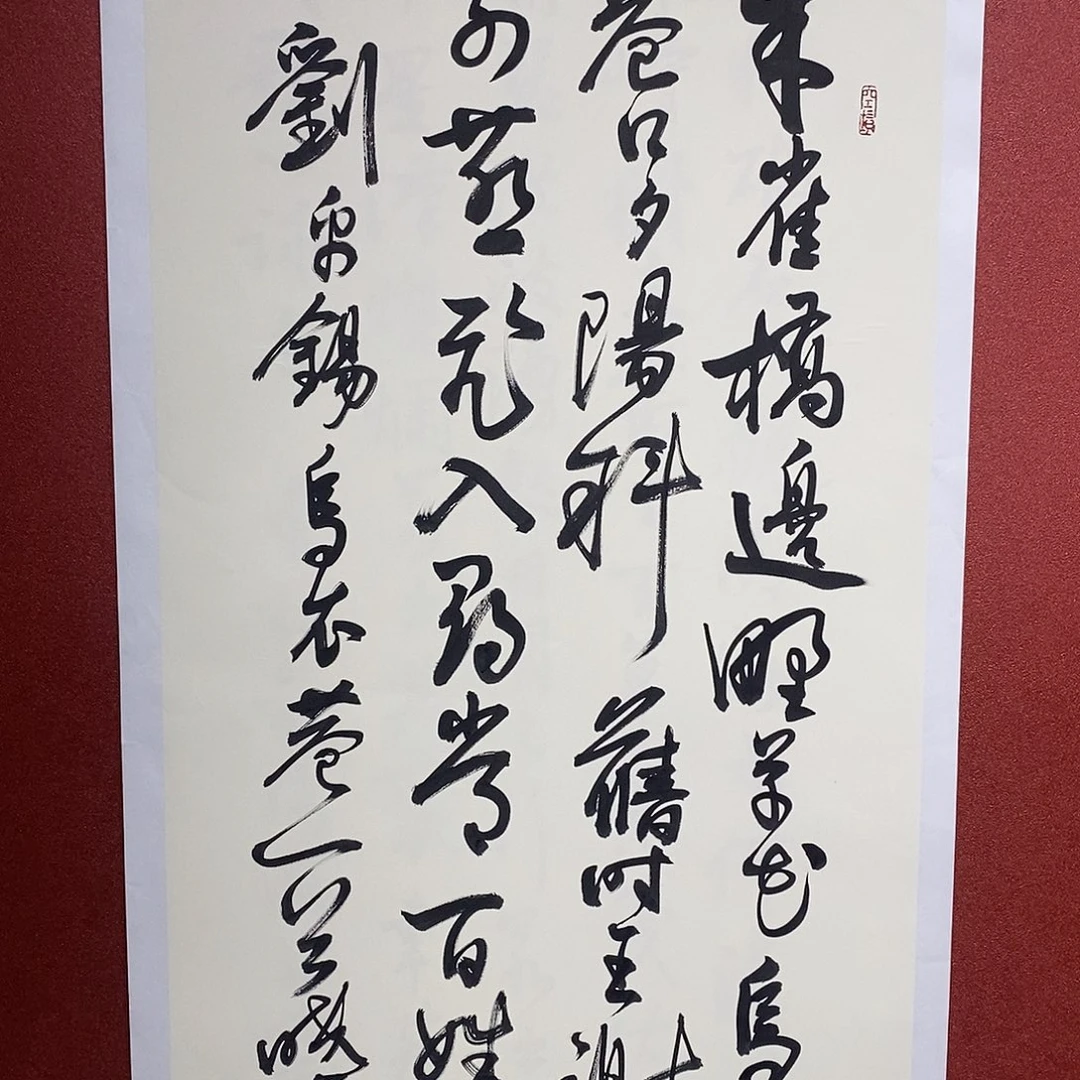 朱雀橋邊野草花烏
巷口夕陽斜舊時王謝
前燕飛入尋常百姓
劉禹錫烏衣巷一首曉